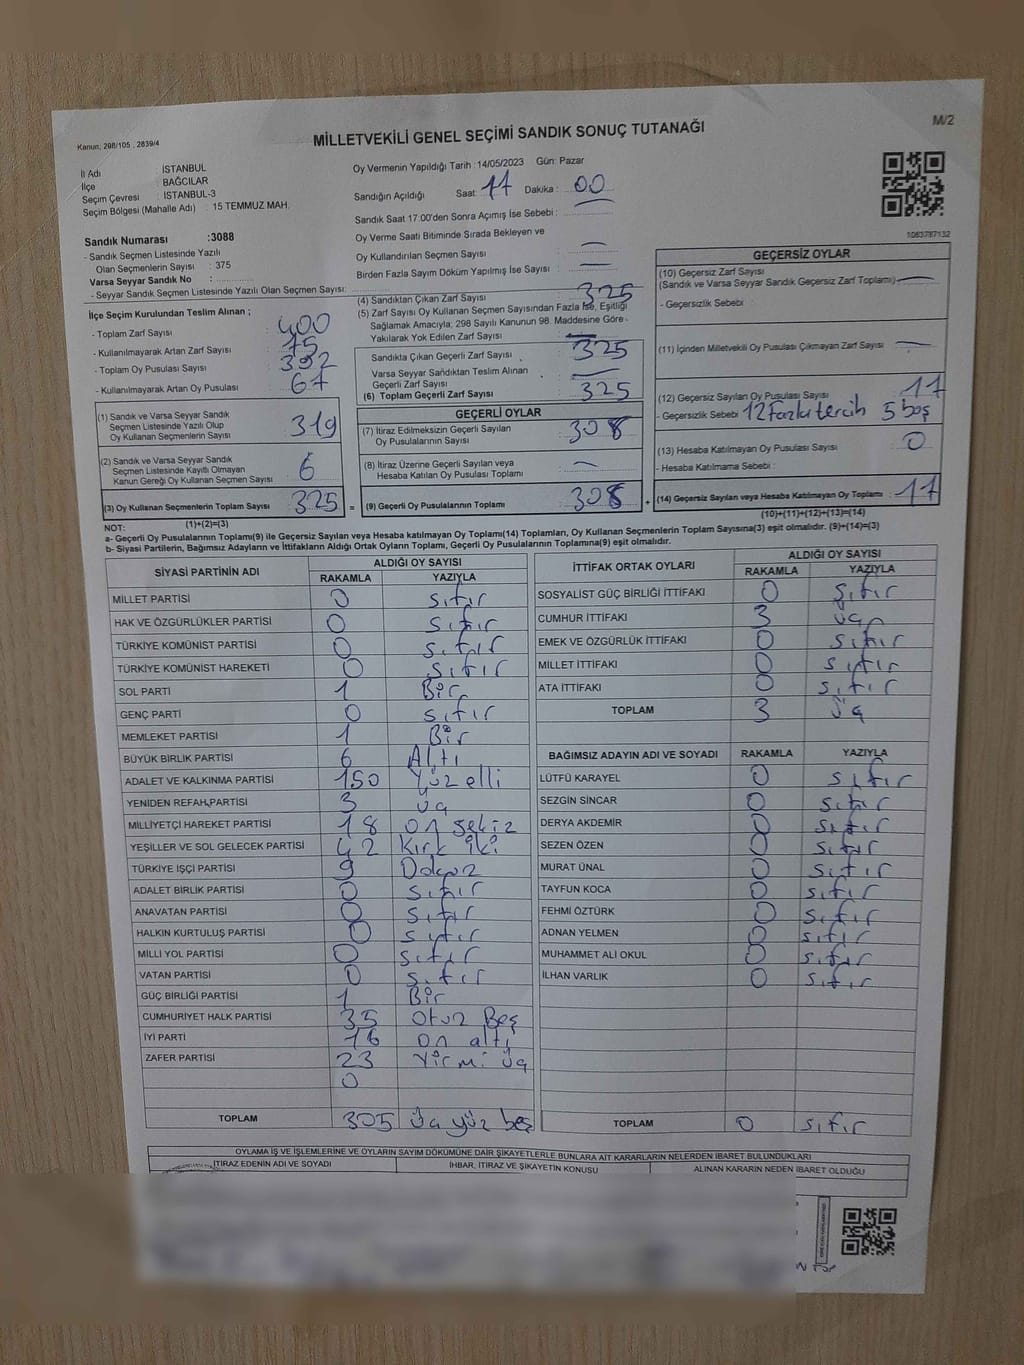 M/2
Kanun; 298/105 , 2839/4
MİLLETVEKİLİ GENEL SEÇİMİ SANDIK SONUÇ TUTANAĞI
İl Adı : İSTANBUL
İlçe : BAĞCILAR
Seçim Çevresi : İSTANBUL-3
Seçim Bölgesi (Mahalle Adı) : 15 TEMMUZ MAH.
Sandık Numarası :3088
- Sandık Seçmen Listesinde Yazılı
Olan Seçmenlerin Sayısı : 375
Varsa Seyyar Sandık No :
- Seyyar Sandık Seçmen Listesinde Yazılı Olan Seçmen Sayısı:
Oy Vermenin Yapıldığı Tarih : 14/05/2023 Gün: Pazar
Sandığın Açıldığı Saat: 17 Dakika : 00
Sandık Saat 17:00'den Sonra Açımış İse Sebebi :
Oy Verme Saati Bitiminde Sırada Bekleyen ve
Oy Kullandırılan Seçmen Sayısı : —
Birden Fazla Sayım Döküm Yapılmış İse Sayısı : —
1083787132
İlçe Seçim Kurulundan Teslim Alınan ;
- Toplam Zarf Sayısı : 400
- Kullanılmayarak Artan Zarf Sayısı : 75
- Toplam Oy Pusulası Sayısı : 392
- Kullanılmayarak Artan Oy Pusulası : 67
(1) Sandık ve Varsa Seyyar Sandık
Seçmen Listesinde Yazılı Olup
Oy Kullanan Seçmenlerin Sayısı : 319
(2) Sandık ve Varsa Seyyar Sandık
Seçmen Listesinde Kayıtlı Olmayan
Kanun Gereği Oy Kullanan Seçmen Sayısı : 6
(3) Oy Kullanan Seçmenlerin Toplam Sayısı : 325
(1)+(2)=(3)
(4) Sandıktan Çıkan Zarf Sayısı : 325
(5) Zarf Sayısı Oy Kullanan Seçmen Sayısından Fazla İse, Eşitliği
Sağlamak Amacıyla, 298 Sayılı Kanunun 98. Maddesine Göre
Yakılarak Yok Edilen Zarf Sayısı : —
Sandıkta Çıkan Geçerli Zarf Sayısı : 325
Varsa Seyyar Sandıktan Teslim Alınan
Geçerli Zarf Sayısı : —
(6) Toplam Geçerli Zarf Sayısı : 325
GEÇERLİ OYLAR
(7) İtiraz Edilmeksizin Geçerli Sayılan
Oy Pusulalarının Sayısı : 308
(8) İtiraz Üzerine Geçerli Sayılan veya
Hesaba Katılan Oy Pusulası Toplamı : —
= (9) Geçerli Oy Pusulalarının Toplamı : 308
GEÇERSİZ OYLAR
(10) Geçersiz Zarf Sayısı
(Sandık ve Varsa Seyyar Sandık Geçersiz Zarf Toplamı) : —
- Geçersizlik Sebebi :
(11) İçinden Milletvekili Oy Pusulası Çıkmayan Zarf Sayısı : —
(12) Geçersiz Sayılan Oy Pusulası Sayısı : 17
- Geçersizlik Sebebi : 12 Fazla tercih 5 boş
(13) Hesaba Katılmayan Oy Pusulası Sayısı : 0
- Hesaba Katılmama Sebebi :
+ (14) Geçersiz Sayılan veya Hesaba Katılmayan Oy Toplamı : 17
(10)+(11)+(12)+(13)=(14)
NOT:
a- Geçerli Oy Pusulalarının Toplamı(9) ile Geçersiz Sayılan veya Hesaba katılmayan Oy Toplamı(14) Toplamları, Oy Kullanan Seçmenlerin Toplam Sayısına(3) eşit olmalıdır. (9)+(14)=(3)
b- Siyasi Partilerin, Bağımsız Adayların ve İttifakların Aldığı Ortak Oyların Toplamı, Geçerli Oy Pusulalarının Toplamına(9) eşit olmalıdır.
SİYASİ PARTİNİN ADI ALDIĞI OY SAYISI
RAKAMLA YAZIYLA
MİLLET PARTİSİ 0 sıfır
HAK VE ÖZGÜRLÜKLER PARTİSİ 0 sıfır
TÜRKİYE KOMÜNİST PARTİSİ 0 sıfır
TÜRKİYE KOMÜNİST HAREKETİ 0 sıfır
SOL PARTİ 1 Bir
GENÇ PARTİ 0 sıfır
MEMLEKET PARTİSİ 1 Bir
BÜYÜK BİRLİK PARTİSİ 6 Altı
ADALET VE KALKINMA PARTİSİ 150 Yüz elli
YENİDEN REFAH PARTİSİ 3 üç
MİLLİYETÇİ HAREKET PARTİSİ 18 on sekiz
YEŞİLLER VE SOL GELECEK PARTİSİ 42 Kırk iki
TÜRKİYE İŞÇİ PARTİSİ 9 Dokuz
ADALET BİRLİK PARTİSİ 0 sıfır
ANAVATAN PARTİSİ 0 sıfır
HALKIN KURTULUŞ PARTİSİ 0 sıfır
MİLLİ YOL PARTİSİ 0 sıfır
VATAN PARTİSİ 0 sıfır
GÜÇ BİRLİĞİ PARTİSİ 1 Bir
CUMHURİYET HALK PARTİSİ 35 otuz Beş
İYİ PARTİ 16 on altı
ZAFER PARTİSİ 23 Yirmi üç
0
TOPLAM 305 üç yüz beş
İTTİFAK ORTAK OYLARI ALDIĞI OY SAYISI
RAKAMLA YAZIYLA
SOSYALİST GÜÇ BİRLİĞİ İTTİFAKI 0 sıfır
CUMHUR İTTİFAKI 3 üç
EMEK VE ÖZGÜRLÜK İTTİFAKI 0 sıfır
MİLLET İTTİFAKI 0 sıfır
ATA İTTİFAKI 0 sıfır
TOPLAM 3 üç
BAĞIMSIZ ADAYIN ADI VE SOYADI RAKAMLA YAZIYLA
LÜTFÜ KARAYEL 0 sıfır
SEZGİN SİNCAR 0 sıfır
DERYA AKDEMİR 0 sıfır
SEZEN ÖZEN 0 sıfır
MURAT ÜNAL 0 sıfır
TAYFUN KOCA 0 sıfır
FEHMİ ÖZTÜRK 0 sıfır
ADNAN YELMEN 0 sıfır
MUHAMMET ALİ OKUL 0 sıfır
İLHAN VARLIK 0 sıfır
TOPLAM 0 sıfır
OYLAMA İŞ VE İŞLEMLERİNE VE OYLARIN SAYIM DÖKÜMÜNE DAİR ŞİKAYETLERLE BUNLARA AİT KARARLARIN NELERDEN İBARET BULUNDUKLARI
İTİRAZ EDENİN ADI VE SOYADI İHBAR, İTİRAZ VE ŞİKAYETİN KONUSU ALINAN KARARIN NEDEN İBARET OLDUĞU